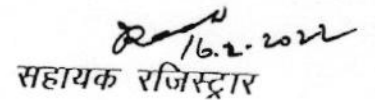 16.2.2022
सहायक रजिस्ट्रार